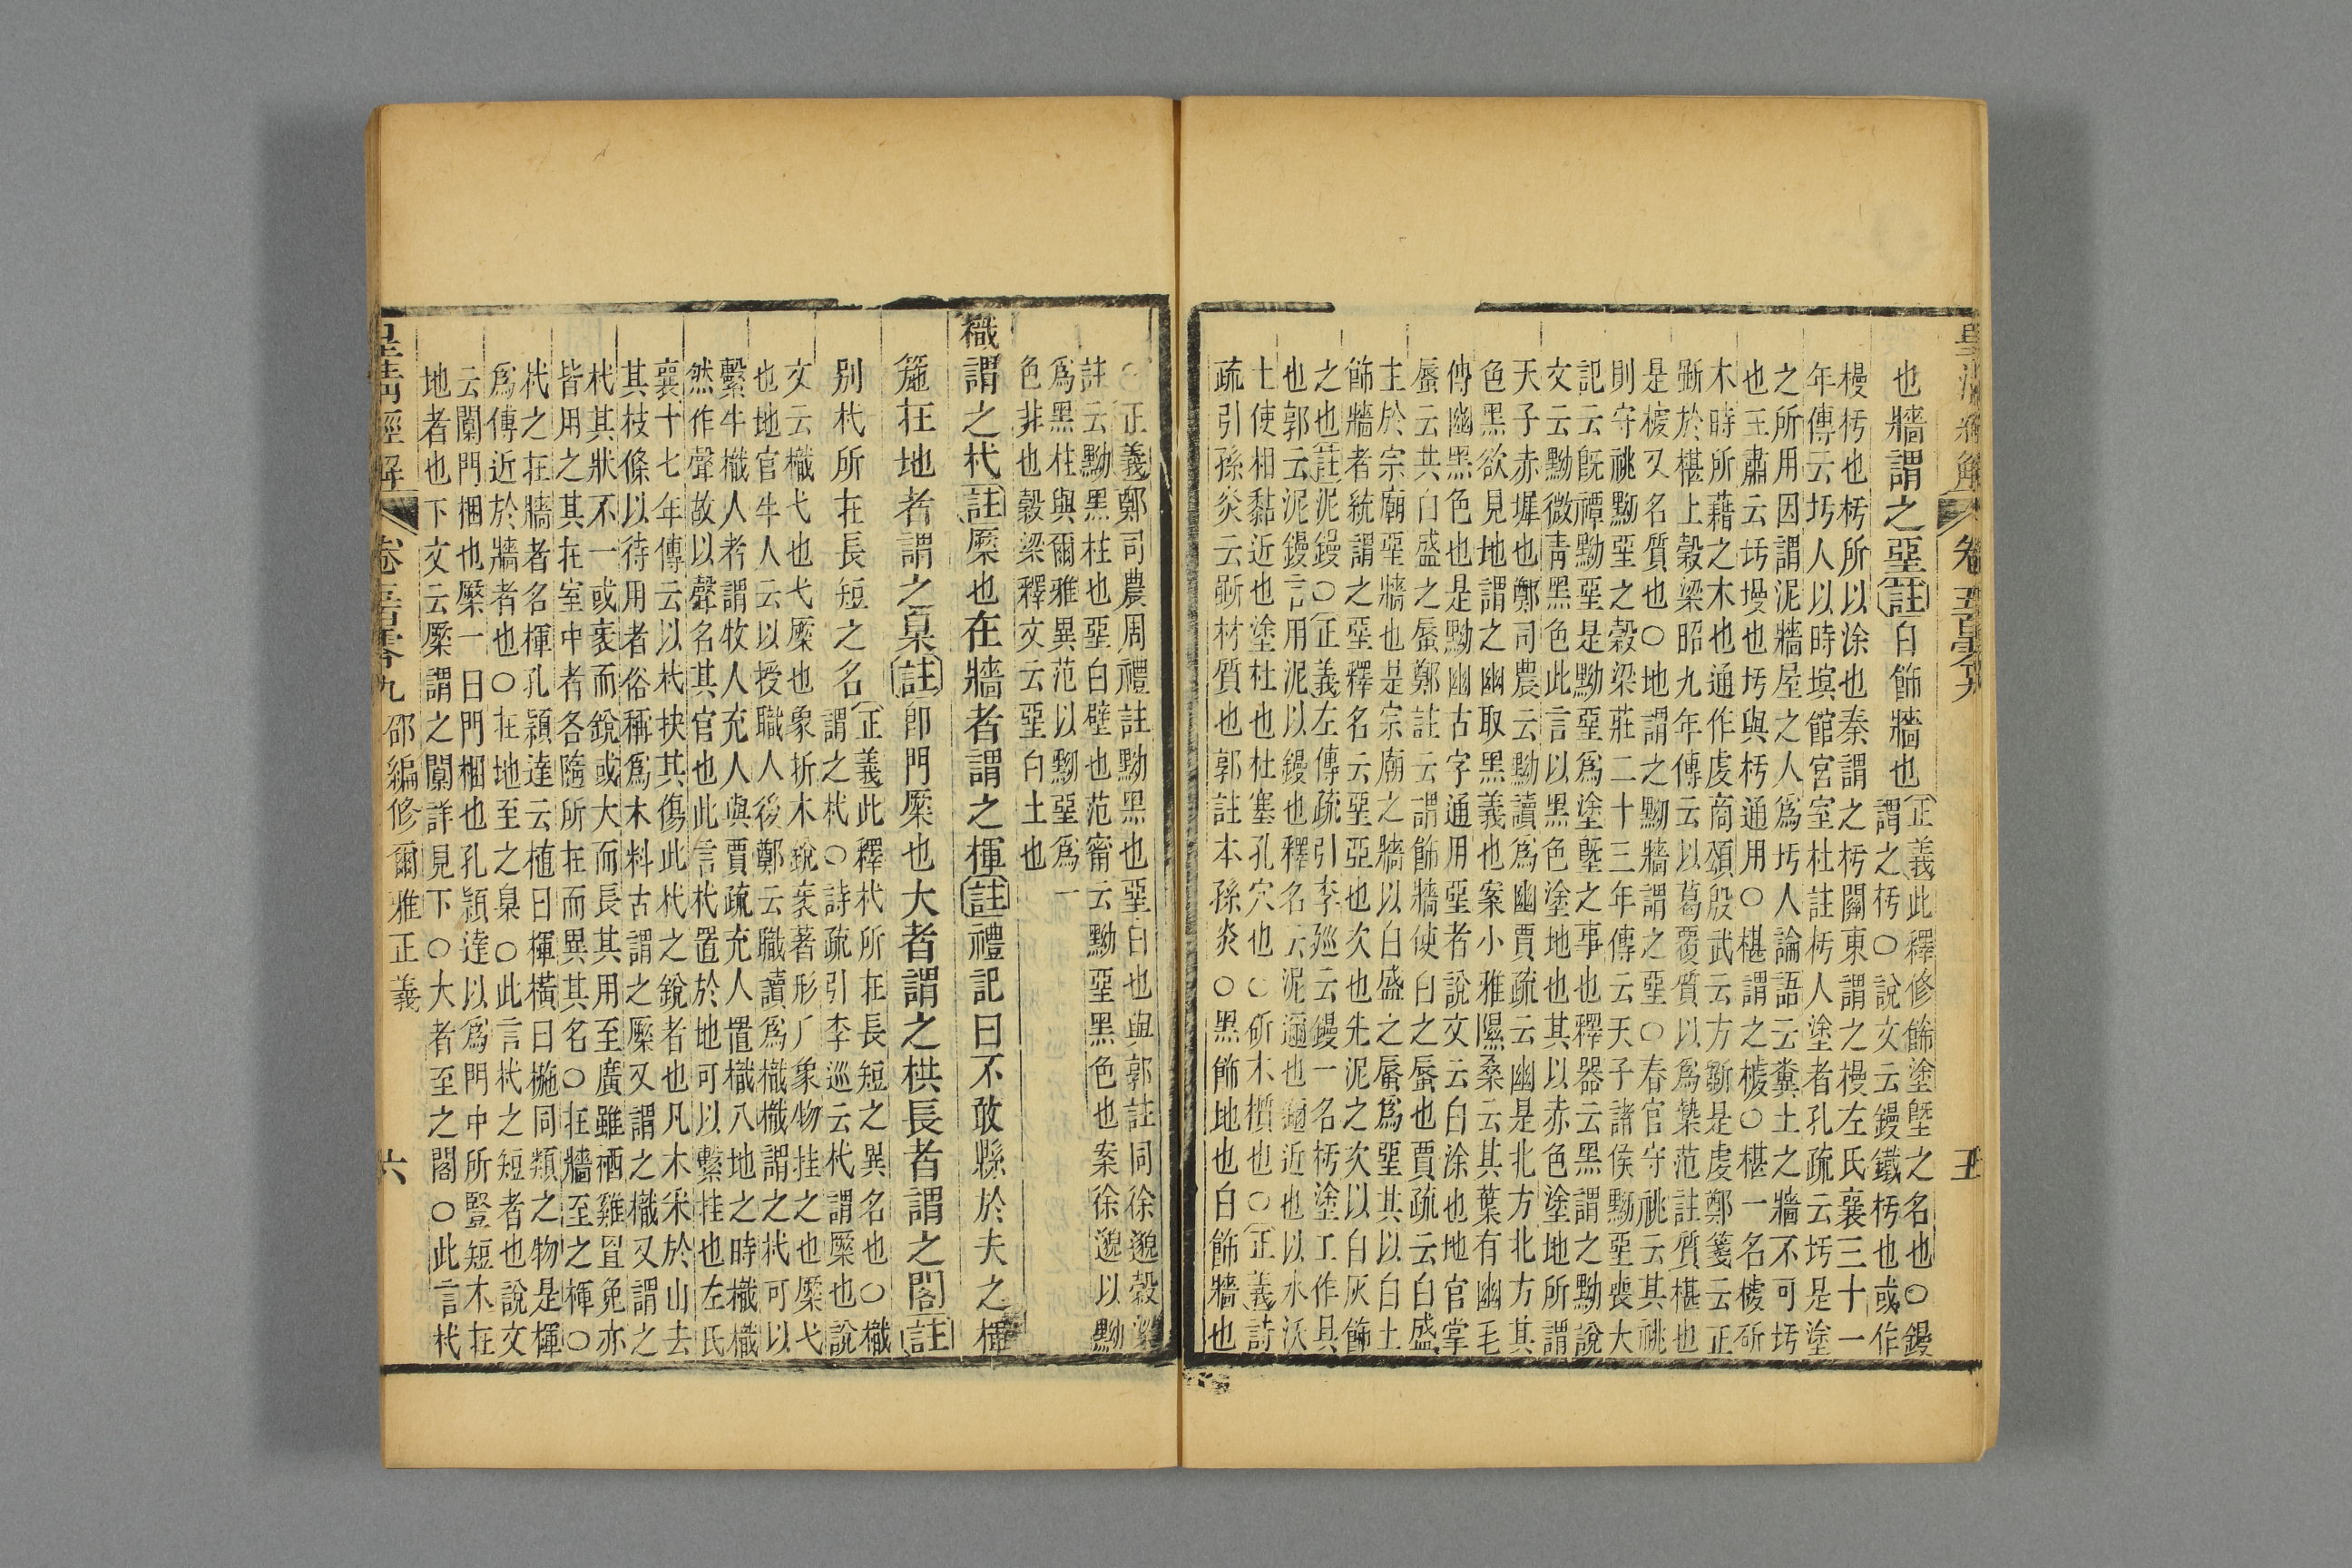 皇清經解 卷五百零九 五
也牆謂之堊註白飾牆也正義此釋修飾塗塈之名也○鏝
謂之杇○說文云鏝鐵杇也或作
槾杇也杇所以涂也秦謂之杇關東謂之槾左氏襄三十一
年傳云圬人以時塓館宮室杜註杇人塗者孔疏云圬是塗
之所用因謂泥牆屋之人爲圬人論語云糞土之牆不可圬
也王肅云圬墁也圬與杇通用○椹謂之榩○椹一名榩斫
木時所藉之木也通作虔商頌殷武云方斲是虔鄭箋云正
斲於椹上榖梁昭九年傳云以葛覆質以爲槷范註質椹也
是榩又名質也○地謂之黝牆謂之堊○春官守祧云其祧
則守祧黝堊之榖梁莊二十三年傳云天子諸侯黝堊喪大
記云旣禫黝堊是黝堊爲塗塈之事也釋器云黑謂之黝說
文云黝微靑黑色此言以黑色塗地也其以赤色塗地所謂
天子赤墀也鄭司農云黝讀爲幽賈疏云幽是北方北方其
色黑欲見地謂之幽取黑義也案小雅隰桑云其葉有幽毛
傳幽黑色也是黝幽古字通用堊者說文云白涂也地官掌
蜃云共白盛之蜃鄭註云謂飾牆使白之蜃也賈疏云白盛
主於宗廟堊牆也是宗廟之牆以白盛之蜃爲堊其以白土
飾牆者統謂之堊釋名云堊亞也次也先泥之次以白灰飾
之也註泥鏝○正義左傳疏引李廵云鏝一名杇塗工作具
也郭云泥鏝言用泥以鏝也釋名云泥邇也邇近也以水沃
土使相黏近也塗杜也杜塞孔穴也○斫木櫍也○正義詩
疏引孫炎云斲材質也郭註本孫炎○黑飾地也白飾牆也
○正義鄭司農周禮註黝黑也堊白也與郭註同徐邈榖梁
註云黝黑柱也堊白壁也范甯云黝堊黑色也案徐邈以黝
爲黑柱與爾雅異范以黝堊爲一
色非也榖梁釋文云堊白土也
樴謂之杙註橜也在牆者謂之楎註禮記曰不敢縣於夫之楎
箷在地者謂之臬註卽門橜也大者謂之栱長者謂之閣註
別杙所在長短之名正義此釋杙所在長短之異名也○樴
謂之杙○詩疏引李巡云杙謂橜也說
文云樴弋也弋橜也象折木銳衺著形厂象物挂之也橜弋
也地官牛人云以授職人後鄭云職讀爲樴樴謂之杙可以
繫牛樴人者謂牧人充人與賈疏充人置樴入地之時樴樴
然作聲故以聲名其官也此言杙置於地可以繫挂也左氏
襄十七年傳云以杙抉其傷此杙之銳者也凡木采於山去
其枝條以待用者俗稱爲木料古謂之橜又謂之樴又謂之
杙其狀不一或衺而銳或大而長其用至廣雖栖雞罝免亦
皆用之其在室中者各隨所在而異其名○在牆至之楎○
杙之在牆者名楎孔穎達云植曰楎橫曰椸同類之物是楎
爲傳近於牆者也○在地至之臬○此言杙之短者也說文
云闑門梱也橜一曰門梱也孔穎達以爲門中所豎短木在
地者也下文云橜謂之闑詳見下○大者至之閣○此言杙
皇清經解 卷五百零九 邵編修爾雅正義 六